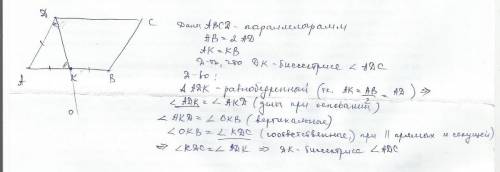 D C
Дано ABCD - параллелограмм
AB = 2 AD
AK = KB
Д-ть, что DK - биссектриса ∠ ADC
Д-во:
Δ ADK - равнобедренный (т.к. AK = AB/2 = AD) ⇒
∠ADK = ∠AKD (углы при основании)
A K B
∠ AKD = ∠ OKB (вертикальные)
∠OKB = ∠ KDC (соответственные, при || прямых и секущей)
O
⇒ ∠KDC = ∠ ADK ⇒ DK - биссектриса ∠ ADC